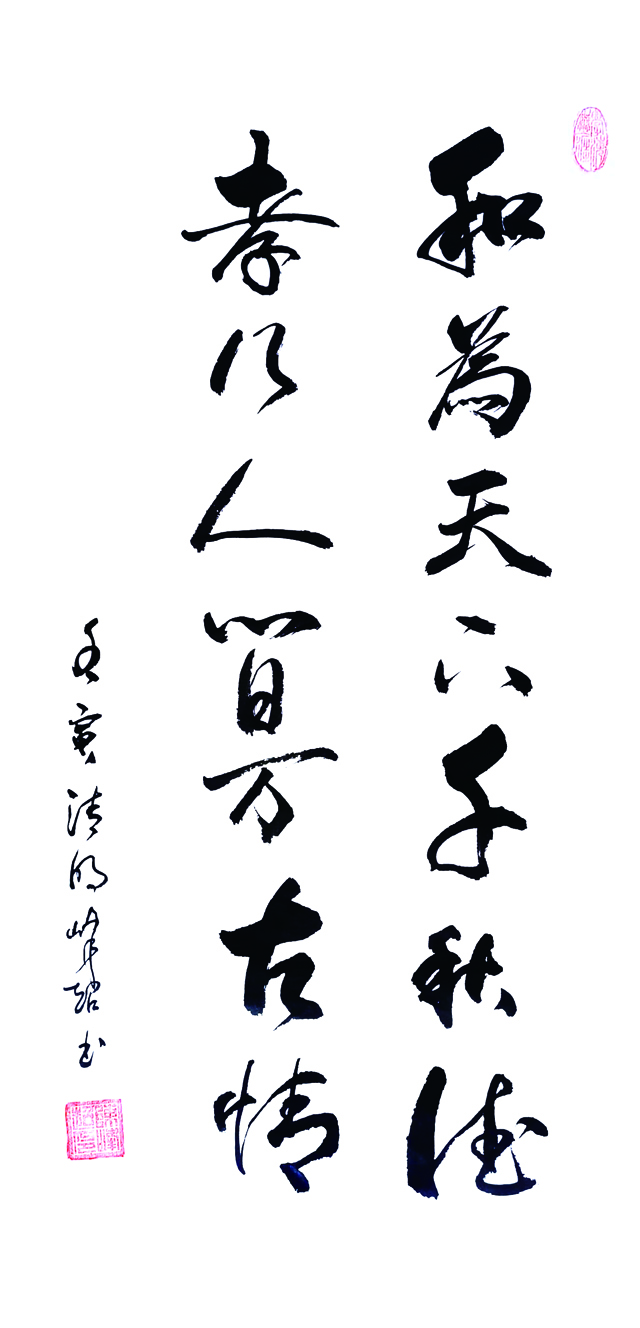 和為天下千秋德
孝乃人間万古情
壬寅清明書